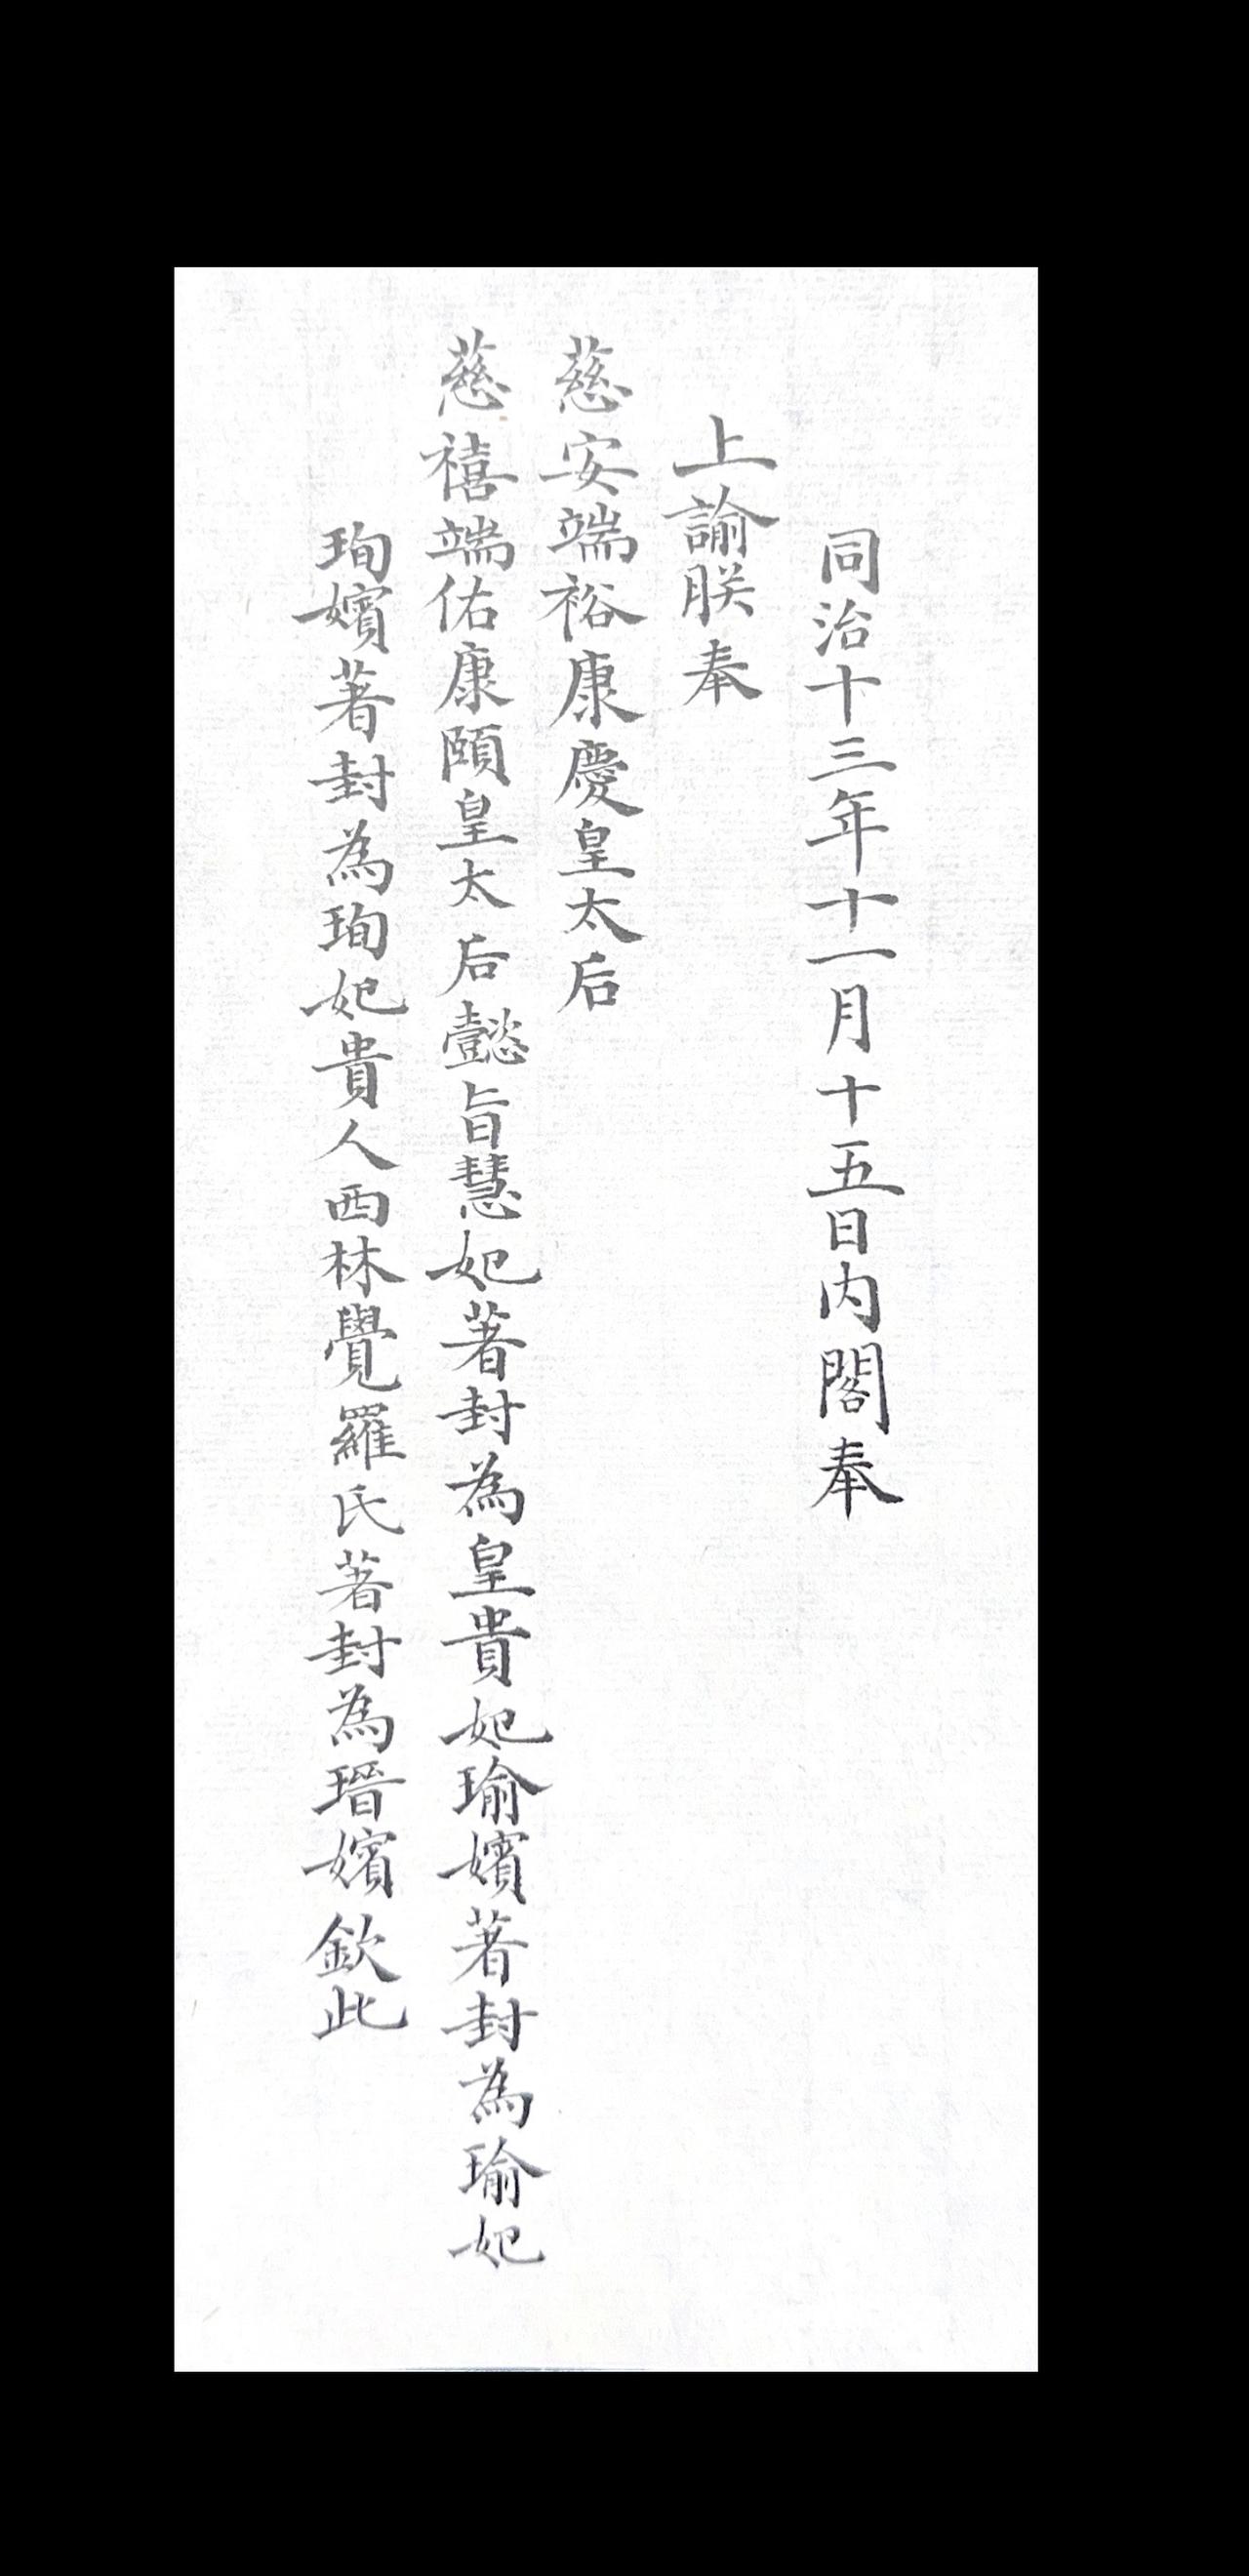 同治十三年十一月十五日内閣奉
上諭朕奉
慈安端裕康慶皇太后
慈禧端佑康頤皇太后懿旨慧妃著封為皇貴妃瑜嬪著封為瑜妃
珣嬪著封為珣妃貴人西林覺羅氏著封為瑨嬪欽此